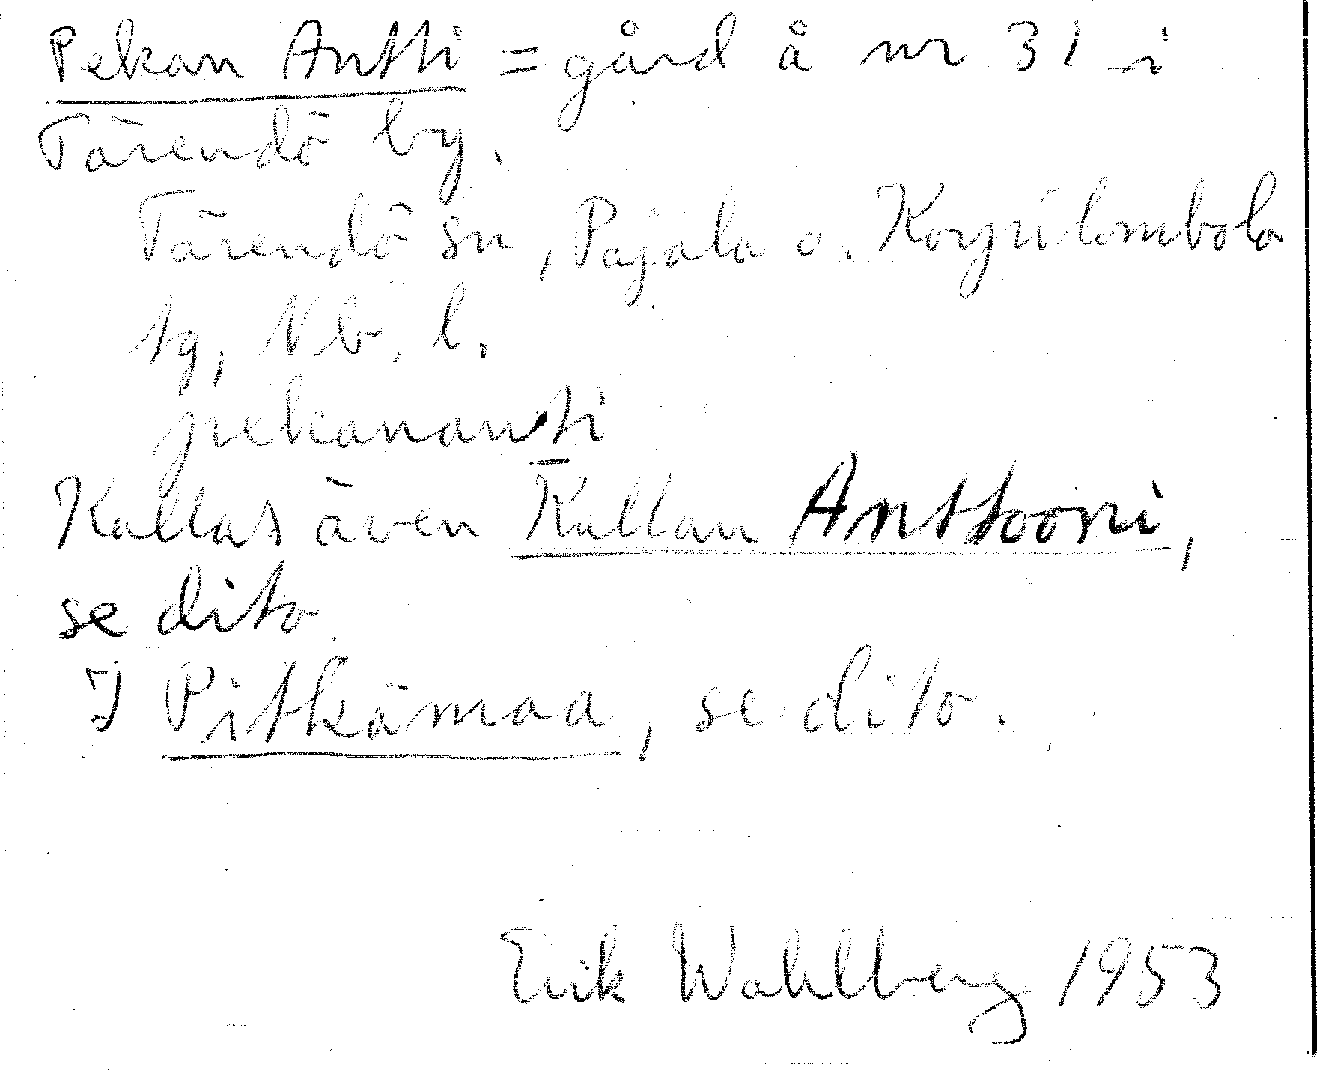 Pekan Antti = gård å nr 31 i
Tärendö by.
Tärendö sn, Pajala o. Korpilombolo
tg, Nb. l.
pekananti
Kallas även Kallan Anttooni,
se dito
I Pitkämaa, se dito.
Erik Wahlberg 1953